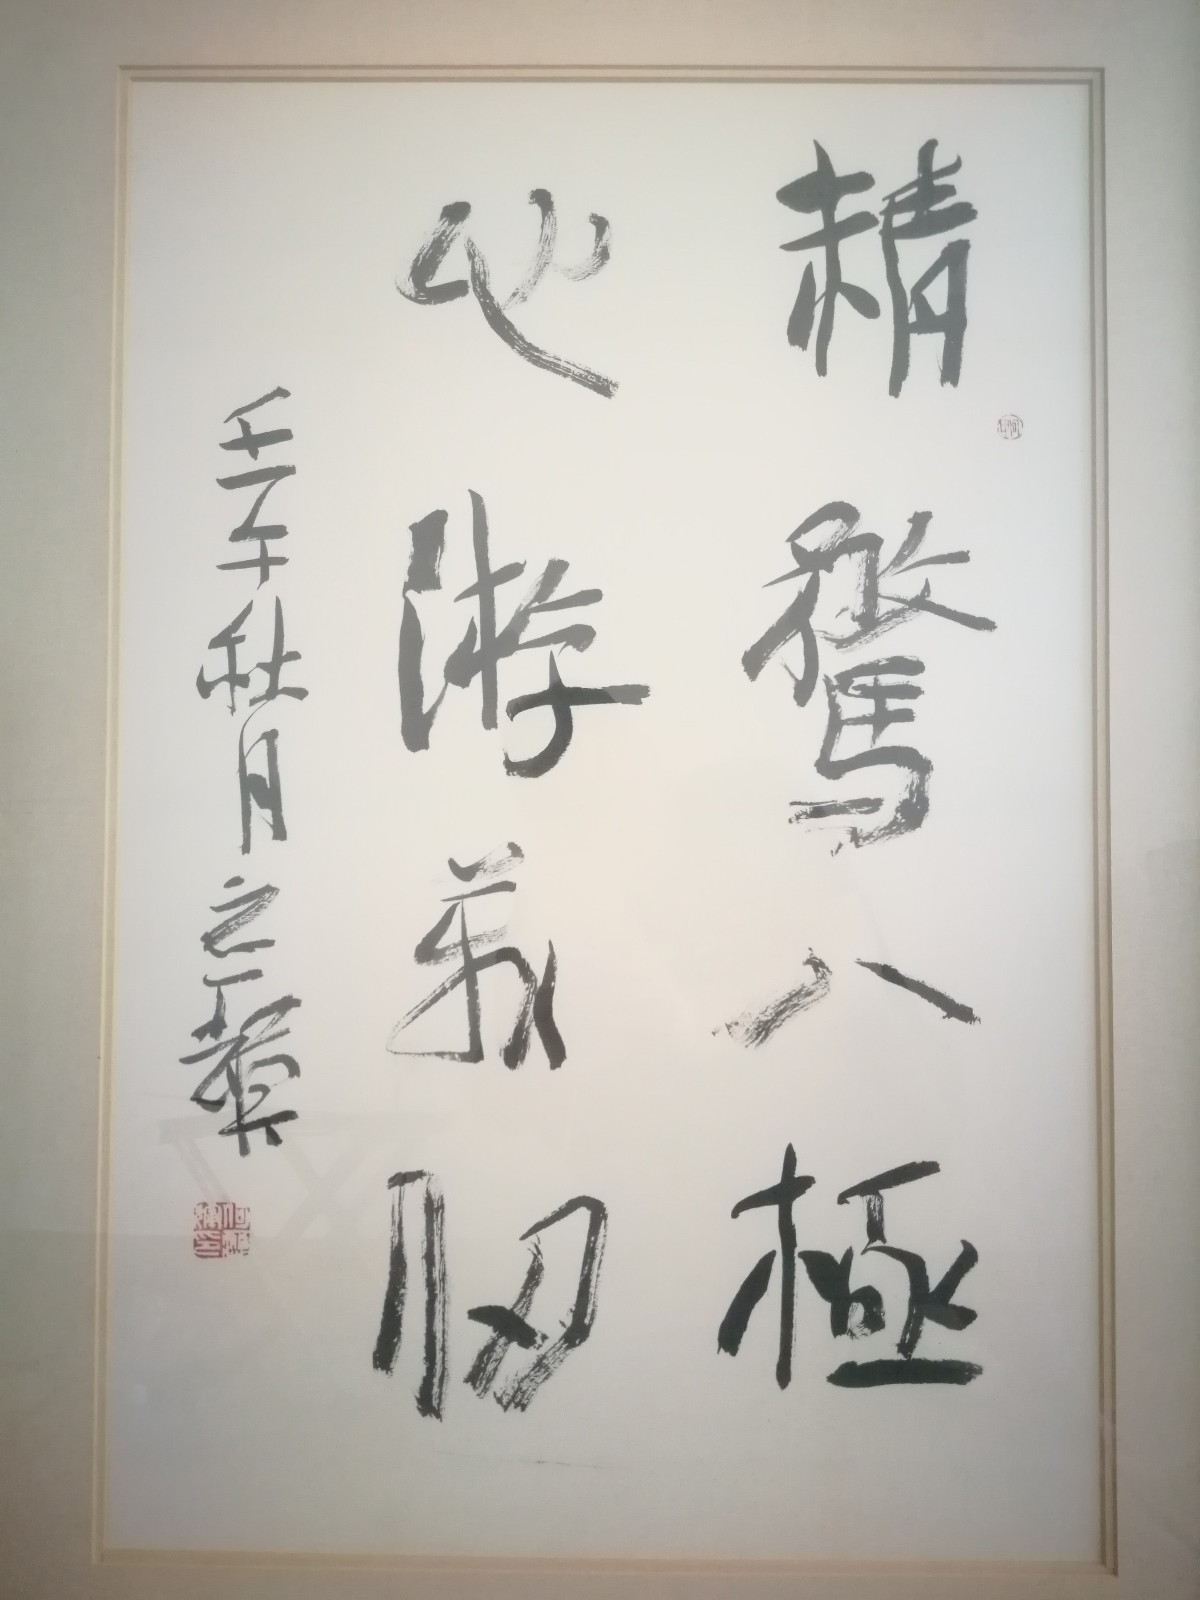 精騖八極
心游萬仞
壬午秋月之